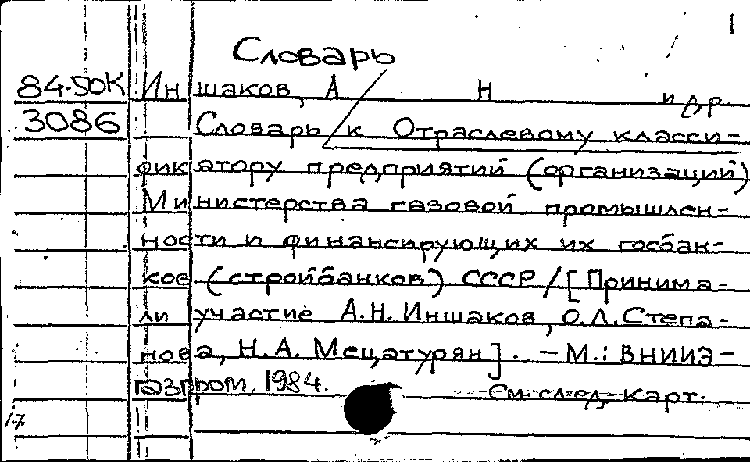 1
Словарь
84-50К Иншаков, А Н и др
3086 Словарь к Отраслевому класси-
фикатору предприятий (организаций)
Министерства газовой промышлен-
ности и финансирующих их госбан-
ков (стройбанков) СССР / [Принима-
ли участие А.Н. Иншаков, О.Л. Степа-
нова, Н.А. Мецатурян]. – М.: ВНИИЭ-
газпром, 1984. См. след. карт.